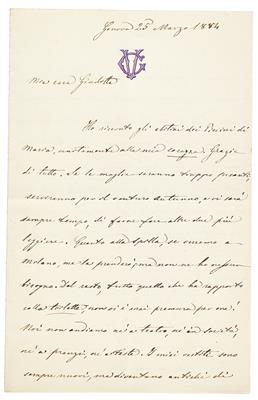 Genova 25 Marzo 1884
GV
Mia cara Giuditta
Ho ricevuto gli abitini dei Bambini di
Maria, unitamente alla mia Grazie
di tutto. Se le maglie saranno troppo pesanti,
serviranno per il venturo autunno, e vi sarà
sempre tempo, di farne fare altre due più
leggiere. Quanto alla spilla, se verremo a
Milano, me la prenderò, ma non ne ho nessun
bisogno. Del resto, tutto quello che ha rapporto
colla toiletta, non vi è mai premura per me!
Noi non andiamo né a teatro, né in società,
né a pranzi, né a feste. I miei vestiti sono
sempre nuovi, ma diventano antichi di